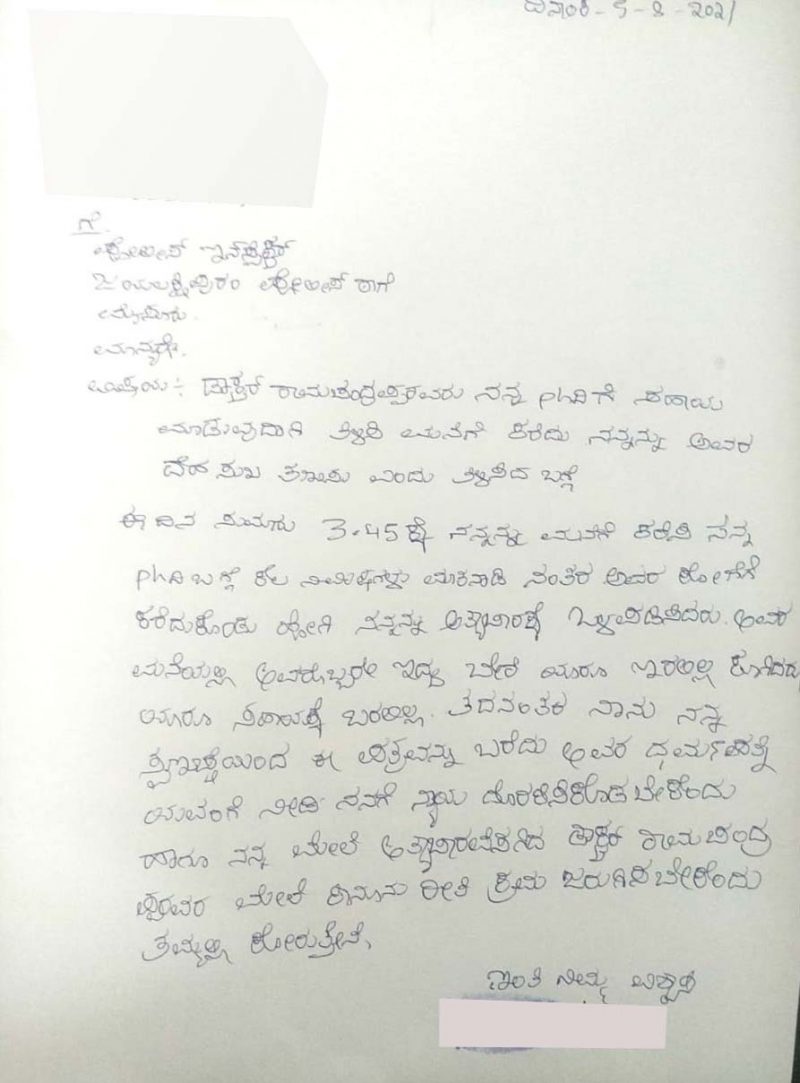 ದಿನಾಂಕ - 5 - 8 - 2021
ಗೆ.
ಪೋಲೀಸ್ ಇನ್ಸ್‌ಪೆಕ್ಟರ್
ಜಯಲಕ್ಷ್ಮಿಪುರಂ ಪೋಲೀಸ್ ಠಾಣೆ
ಮೈಸೂರು.
ಮಾನ್ಯರೇ.
ವಿಷಯ : ಡಾಕ್ಟರ್ ರಾಮಚಂದ್ರಪ್ಪರವರು ನನ್ನ phd ಗೆ ಸಹಾಯ
ಮಾಡುವುದಾಗಿ ತಿಳಿಸಿ ಮನೆಗೆ ಕರೆದು ನನ್ನನ್ನು ಅವರ
ದೇಹ ಸುಖ ಎಂದು ತಿಳಿಸಿದ ಬಗ್ಗೆ
ಈ ದಿನ ಸುಮಾರು 3.45ಕ್ಕೆ ನನ್ನನ್ನು ಮನೆಗೆ ಕರೆಸಿ ನನ್ನ
phd ಬಗ್ಗೆ ಕೆಲ ನಿಮಿಷಗಳು ಮಾತನಾಡಿ ನಂತರ ಅವರ ಕೋಣೆಗೆ
ಕರೆದುಕೊಂಡು ಹೋಗಿ ನನ್ನನ್ನು ಅತ್ಯಾಚಾರಕ್ಕೆ ಒಳಪಡಿಸಿದರು. ಅವರ
ಮನೆಯಲ್ಲಿ ಅವರೊಬ್ಬರೇ ಇದ್ದು ಬೇರೆ ಯಾರೂ ಇರಲಿಲ್ಲ ಕೂಗಿದರು
ಯಾರೂ ಸಹಾಯಕ್ಕೆ ಬರಲಿಲ್ಲ. ತದನಂತರ ನಾನು ನನ್ನ
ಸ್ವಇಚ್ಛೆಯಿಂದ ಈ ಪತ್ರವನ್ನು ಬರೆದು ಅವರ ಧರ್ಮಪತ್ನಿ
ನೀಡಿ ನನಗೆ ನ್ಯಾಯ ದೊರಕಿಸಿಕೊಡಬೇಕೆಂದು
ಹಾಗೂ ನನ್ನ ಮೇಲೆ ಅತ್ಯಾಚಾರವೆಸಗಿದ ಡಾಕ್ಟರ್ ರಾಮಚಂದ್ರ
ಪ್ಪರವರ ಮೇಲೆ ಕಾನೂನು ರೀತಿ ಕ್ರಮ ಜರುಗಿಸಬೇಕೆಂದು
ತಮ್ಮಲ್ಲಿ ಕೋರುತ್ತೇನೆ,
ಇಂತಿ ನಿಮ್ಮ ವಿಶ್ವಾಸಿ